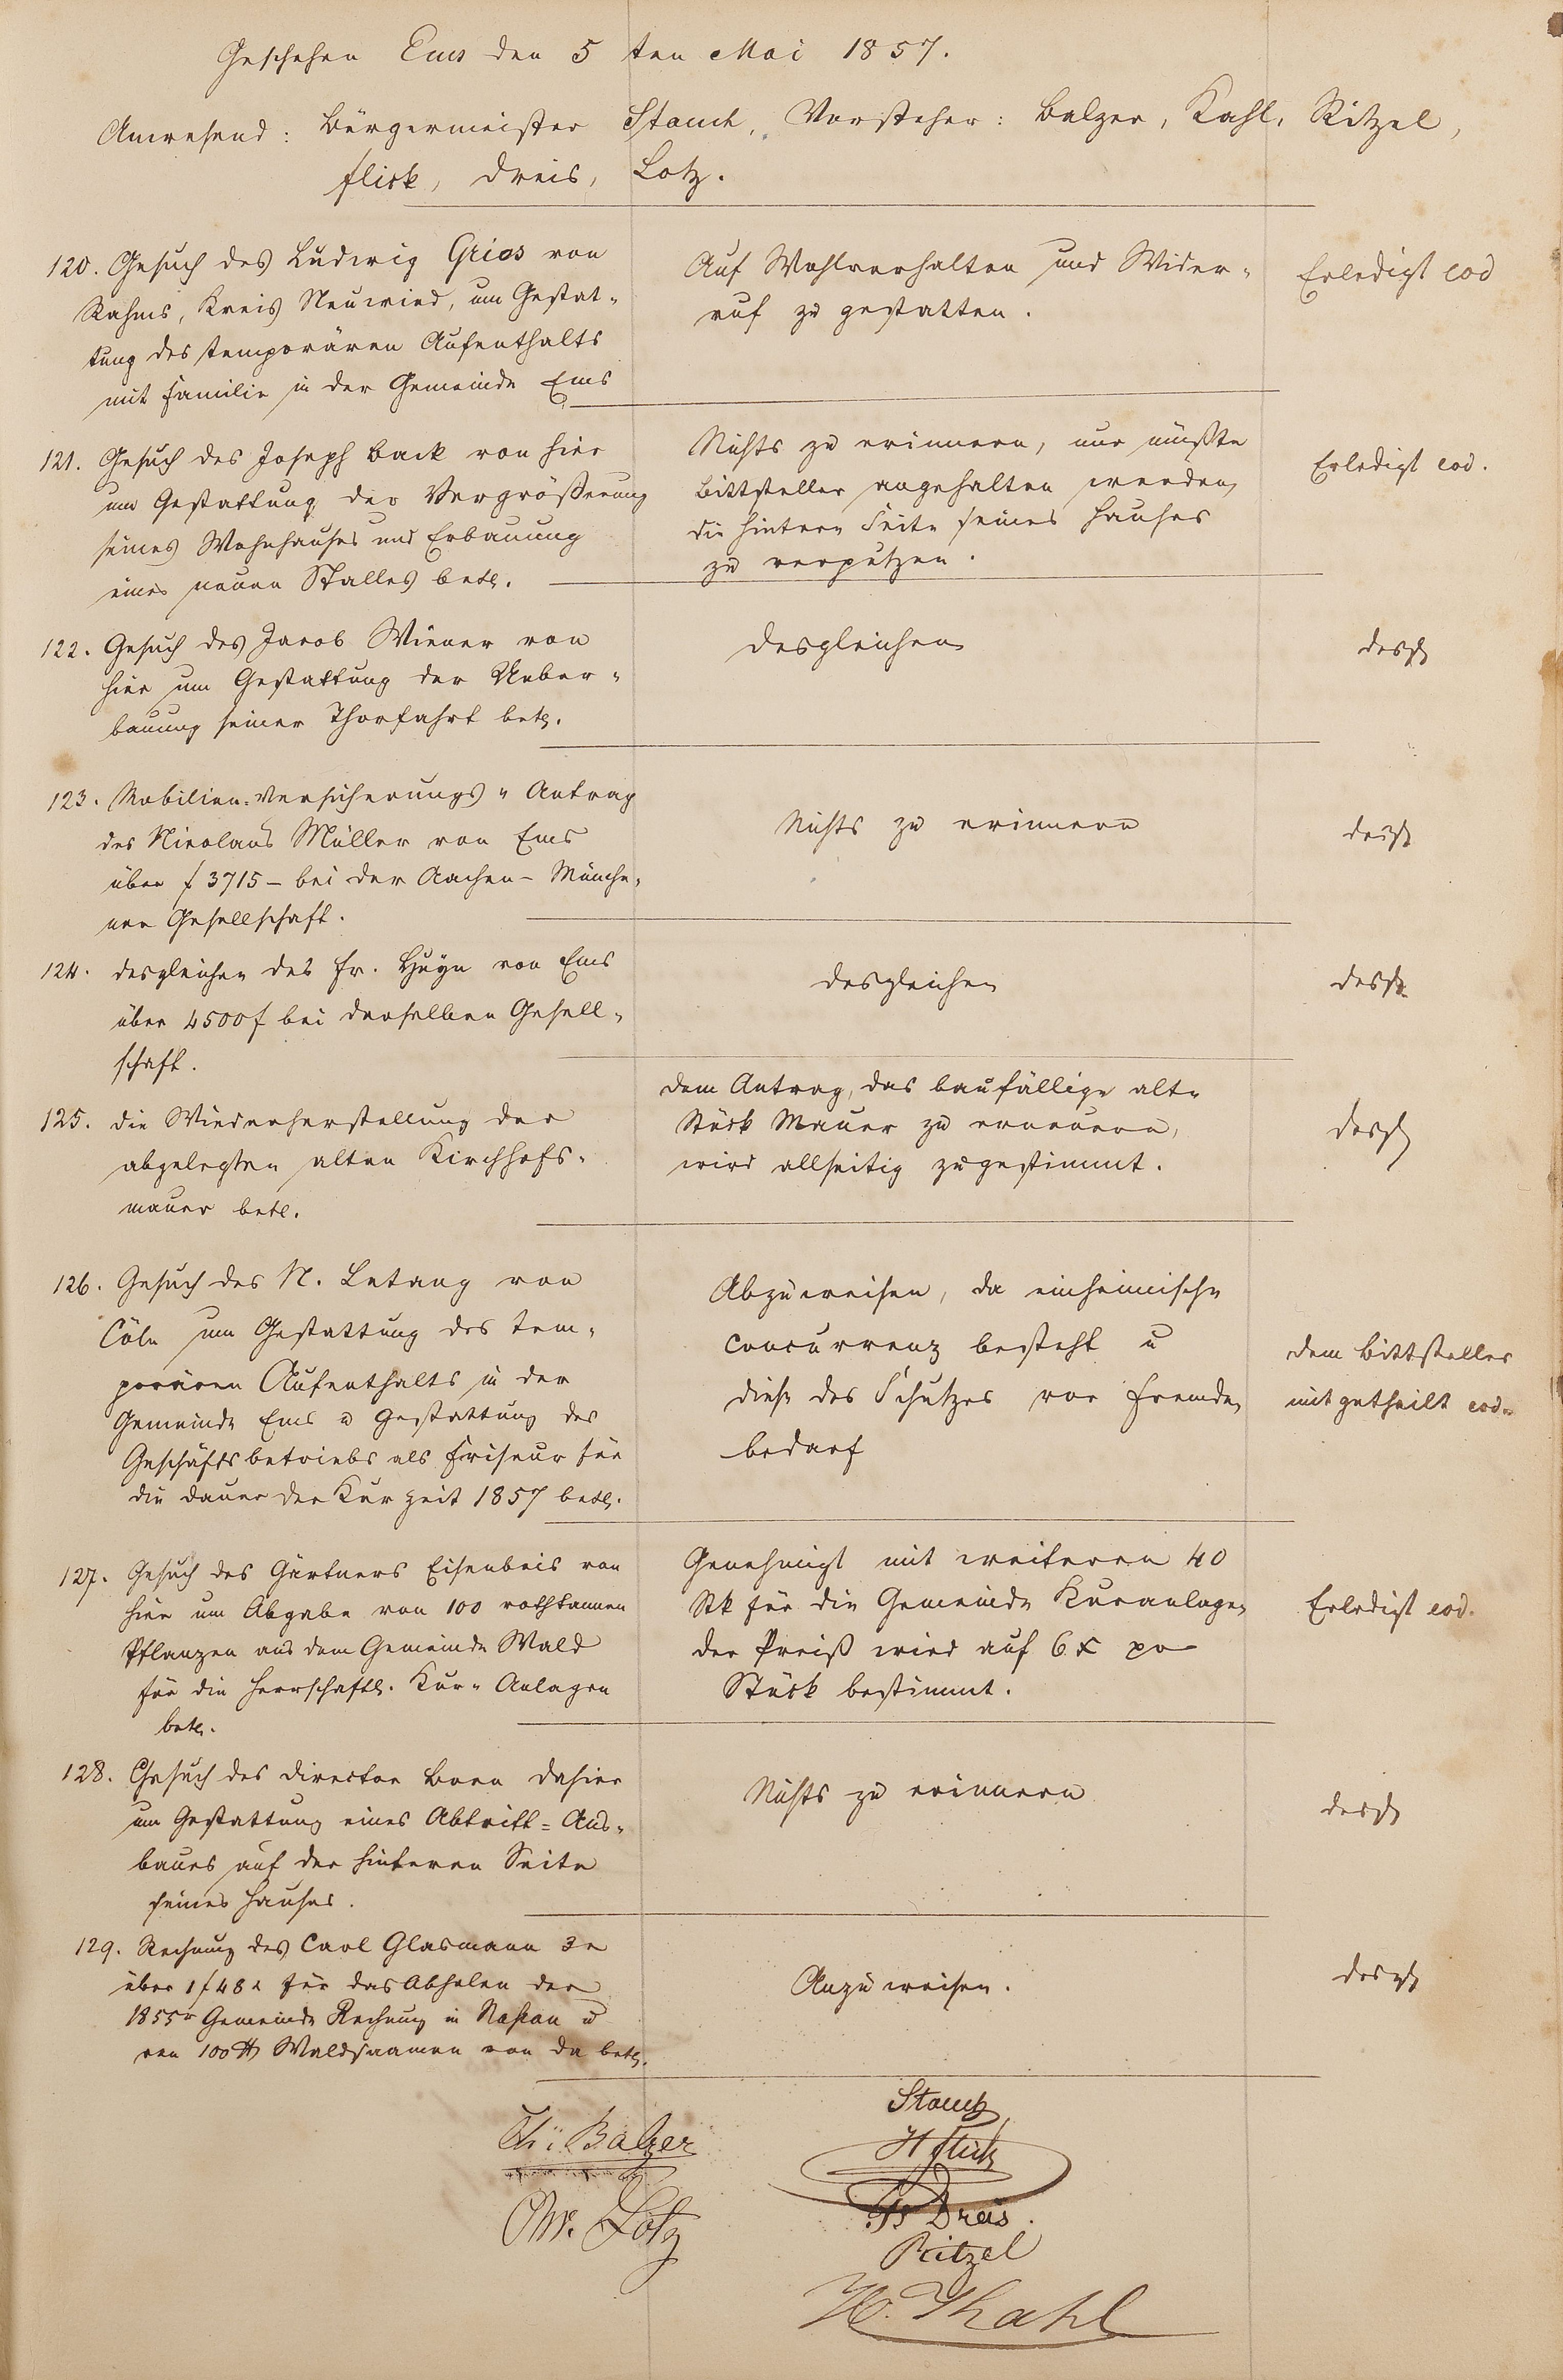 Geschehen Ems den 5ten Mai 1857.
Anwesend: Bürgermeister Stauch, Vorsteher: Balzer, Kahl, Ritzel,
Flick, Dreis, Lotz.
120. Gesuch des Ludwig Gries von
Rahms, Kreis Neuwied, um Gestat-
tung des temporären Aufenthalts
mit Familie in der Gemeinde Ems
Auf Wohlverhalten und Wider-
ruf zu gestatten.
Erledigt eod
121. Gesuch des Joseph Back von hier
um Gestattung der Vergrößerung
seines Wohnhauses und Erbauung
eines neuen Stalles betr.
Nichts zu erinnern, nur müßte
Bittsteller angehalten werden
die hintere Seite seines Hauses
zu verputzen.
Erledigt eod.
122. Gesuch des Jacob Wiener von
hier um Gestattung der Ueber-
bauung seiner Thorfahrt betr.
desgleichen
desgl
123. Mobilien-Versicherungs-Antrag
des Nicolaus Müller von Ems
über f 3715 – bei der Aachen-Münche-
ner Gesellschaft.
Nichts zu erinnern
desgl
124. desgleichen des Fr. Heyn von Ems
über 4500 f bei derselben Gesell-
schaft.
desgleichen
desgl.
125. die Wiederherstellung der
abgelegten alten Kirchhofs-
mauer betr.
dem Antrag, das baufällige alte
Stück Mauer zu erneuern,
wird allseitig zugestimmt.
desgl
126. Gesuch des N. Letang von
Cöln um Gestattung des tem-
porären Aufenthalts in der
Gemeinde Ems u Gestattung des
Geschäftsbetriebs als Friseur für
die Dauer der Kurzeit 1857 betr.
Abzuweisen, da einheimische
Concurrenz besteht u
diese des Schutzes vor Fremden
bedarf
dem Bittsteller
mitgetheilt eod.
127. Gesuch des Gärtners Eisenbeis von
hier um Abgabe von 100 rothtannen
Pflanzen aus dem Gemeinde Wald
für die Herrschaftl. Kur-Anlagen
betr.
Genehmigt mit weiteren 40
Stk für die Gemeinde Kuranlagen
der Preiß wird auf 6 x pr
Stück bestimmt.
Erledigt eod.
128. Gesuch des Director Born dahier
um Gestattung eines Abtritt-Aus-
baues auf der hinteren Seite
seines Hauses.
Nichts zu erinnern
desgl
129. Rechnung des Carl Glasmann 3r
über 1 f 48 x für das Abholen der
1855r Gemeinde Rechnung in Nassau u
von 100 ℔ Waldsaamen von da betr.
Anzuweisen.
desgl
Stauch
Chr: Balzer
H Flick
Chr. Lotz
Dreis.
Ritzel
H. Kahl